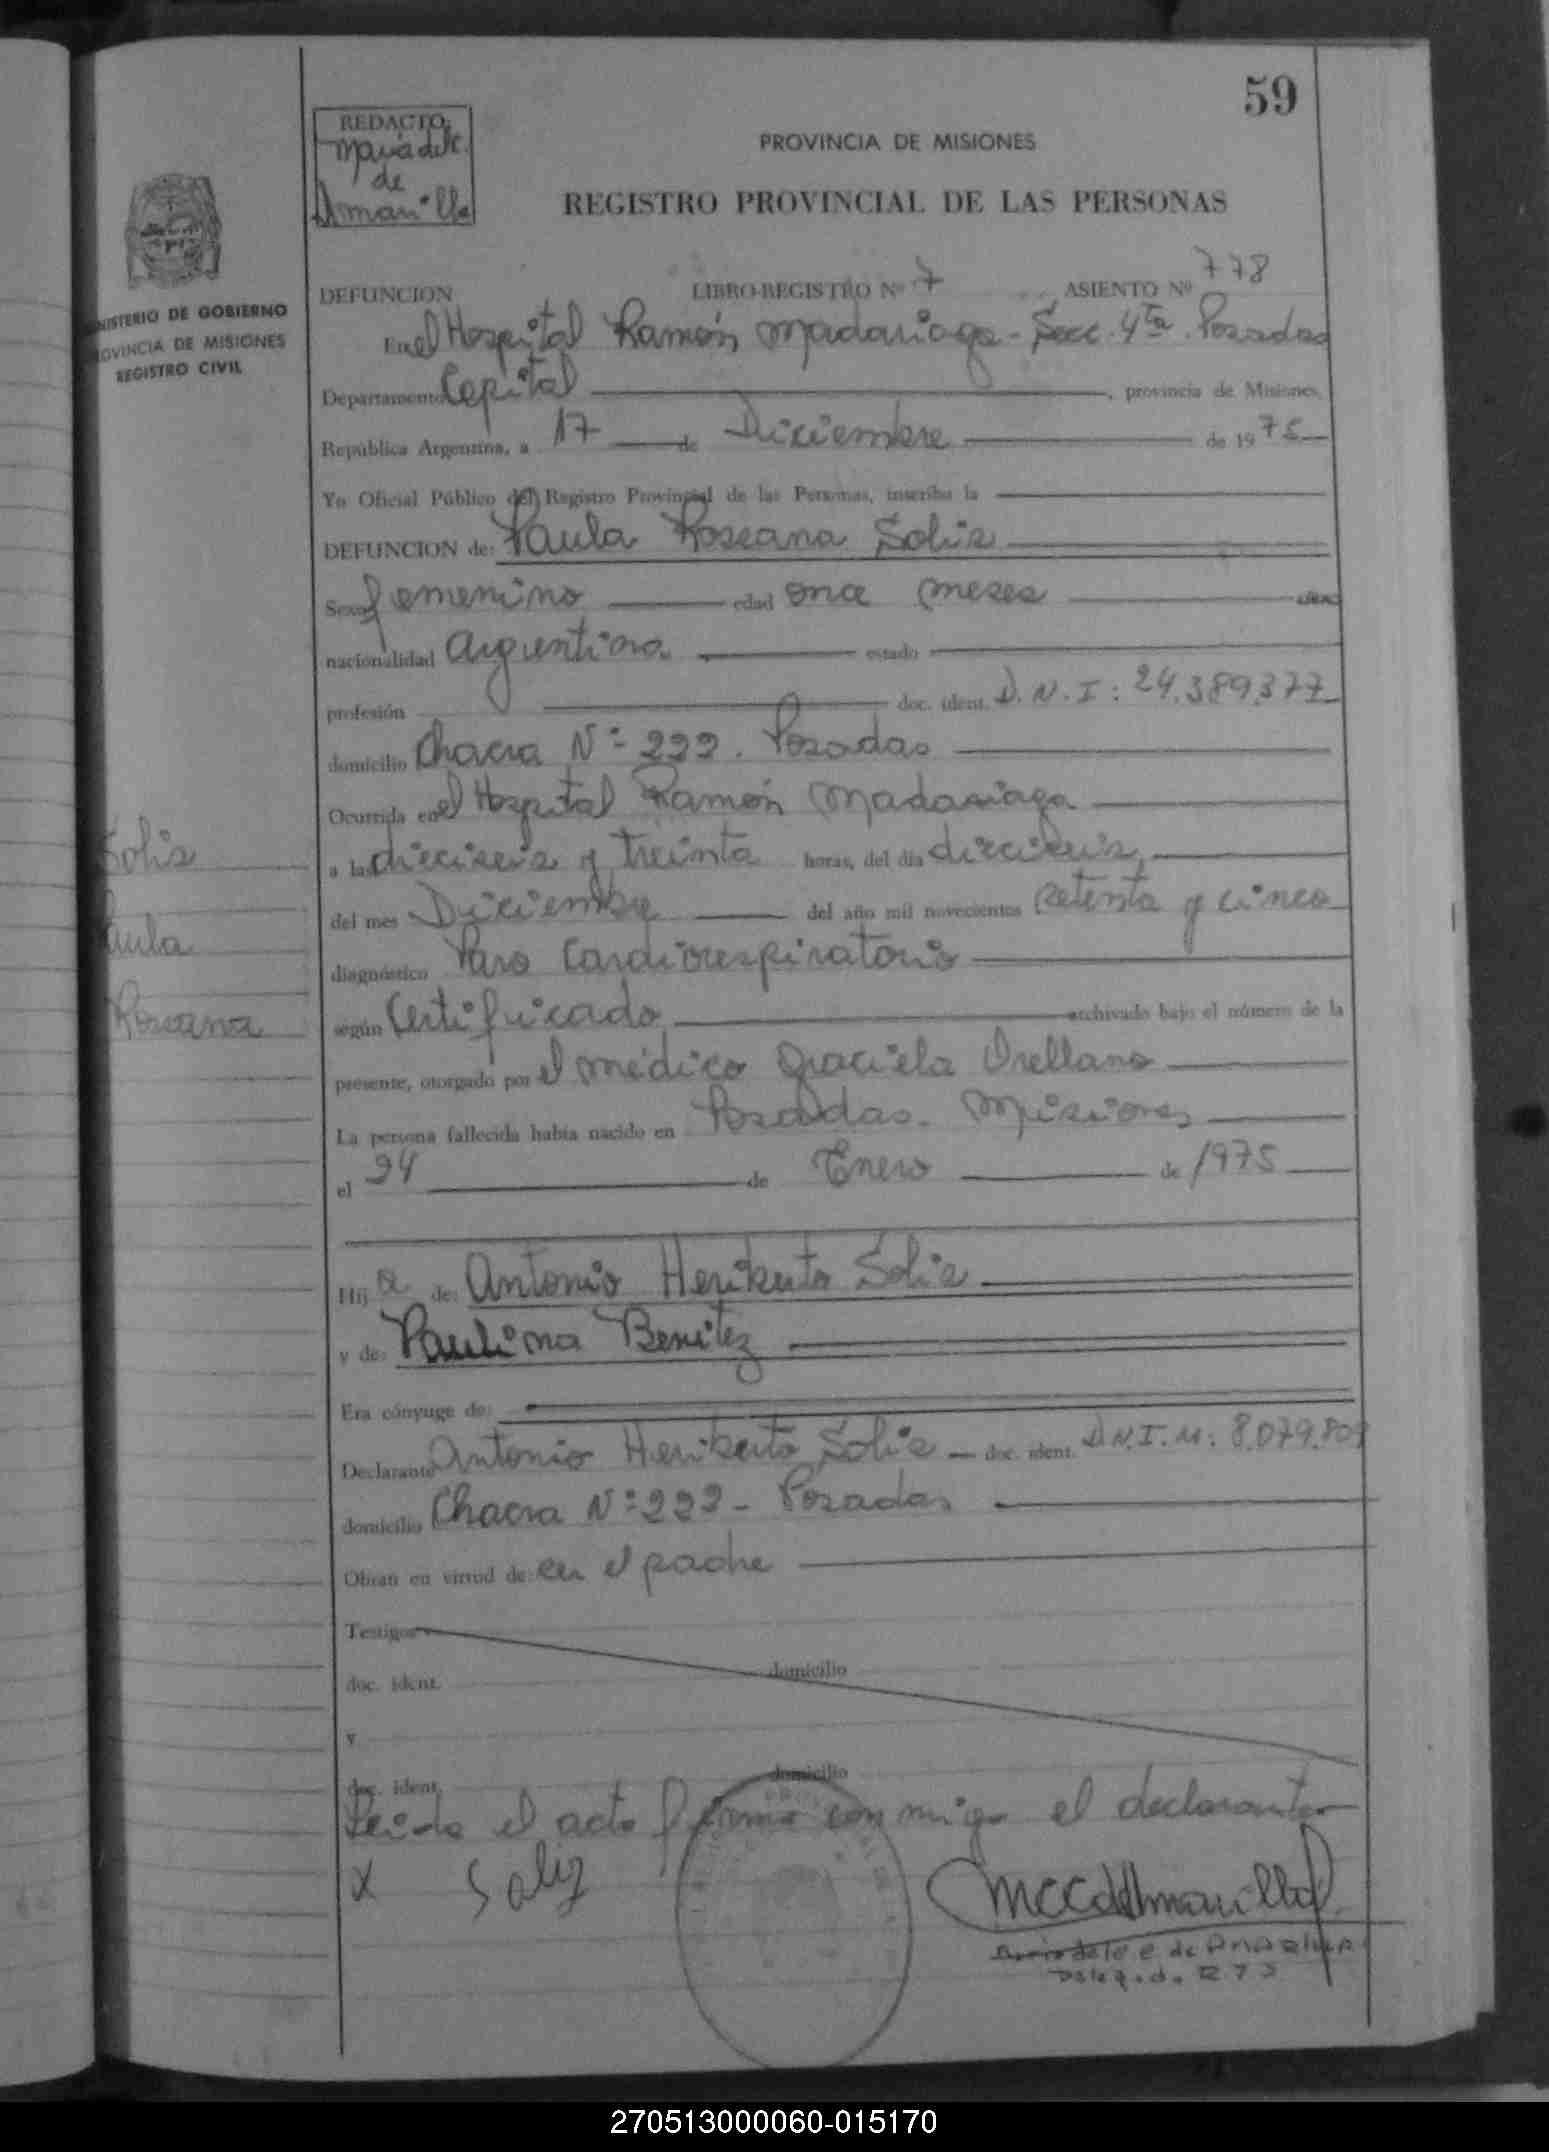 59
REDACTO:
Maria del C.
de
Amarilla
PROVINCIA DE MISIONES
REGISTRO PROVINCIAL DE LAS PERSONAS
MINISTERIO DE GOBIERNO
PROVINCIA DE MISIONES
REGISTRO CIVIL
DEFUNCION LIBRO-REGISTRO Nº 7 ASIENTO Nº 778
En el Hospital Ramón Madariaga - Secc. 4ta. Posadas
Departamento Capital, provincia de Misiones,
República Argentina, a 17 de Diciembre de 1975
Yo Oficial Público del Registro Provincial de las Personas, inscribo la
DEFUNCION de: Paula Roseana Solis
Sexo femenino edad once meses
nacionalidad argentina estado
profesión doc. ident. D.N.I: 24.389.377
domicilio Chacra Nº 222. Posadas
Ocurrida en el Hospital Ramón Madariaga
a las dieciseis y treinta horas, del día dieciseis
del mes Diciembre del año mil novecientos setenta y cinco
diagnóstico Paro Cardiorespiratorio
según Certificado archivado bajo el número de la
presente, otorgado por el médico Graciela Orellano
La persona fallecida había nacido en Posadas. Misiones
el 24 de Enero de 1975
Hija de: Antonio Heriberto Solis
y de: Paulina Benitez
Era cónyuge de:
Declarante Antonio Heriberto Solis doc. ident. D.N.I.M: 8.079.809
domicilio Chacra Nº 222 - Posadas
Obran en virtud de: ser el padre
Testigos
doc. ident. domicilio
y
doc. ident. domicilio
Leida el acta firma conmigo el declarante
X Soliz
Solis
Paula
Roseana
270513000060-015170